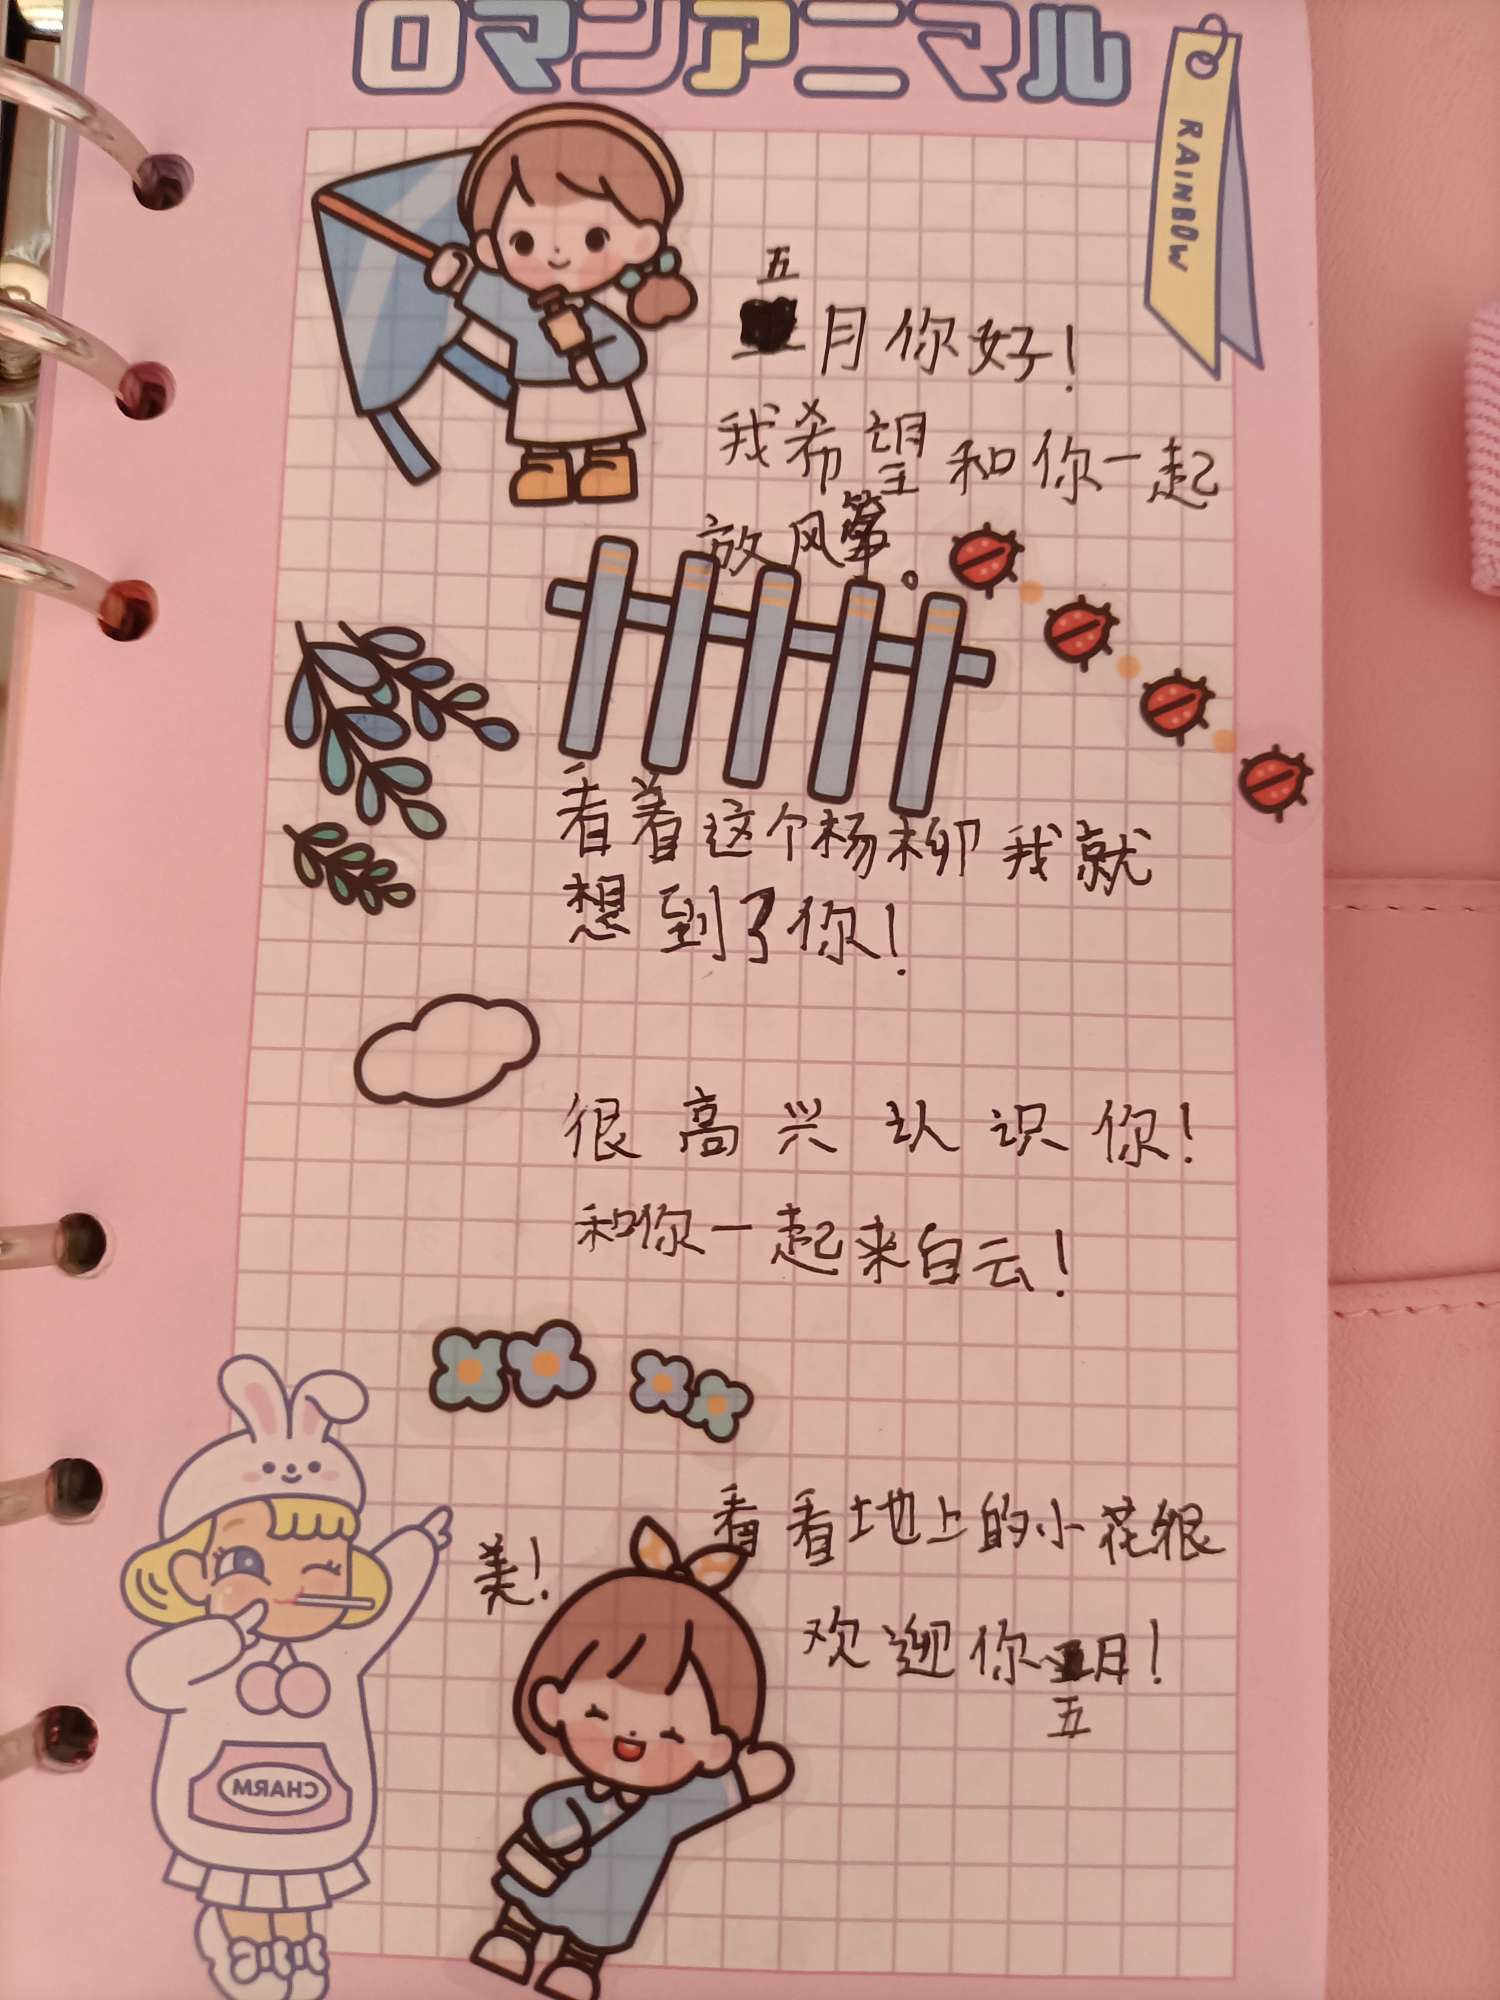 ロマンアニマル
RAINBOW
五
月你好！
我希望和你一起
放风筝。
看着这个杨柳我就
想到了你！
很高兴认识你！
和你一起来白云！
看看地上的小花很
美！
欢迎你月！
五
CHARM